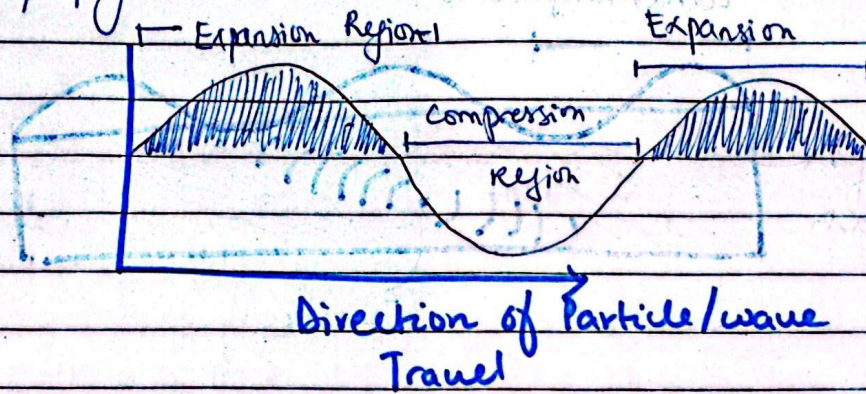 Expansion Regionel
Expansion
Compression
Region
Direction of Particle/wave
Travel